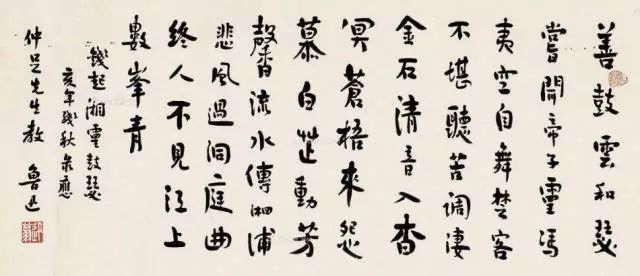 善鼓雲和瑟
嘗聞帝子靈馮
夷空自舞楚客
不堪聽苦調凄
金石清音入杳
冥蒼梧來怨
慕白芷動芳
馨流水傳湘浦
悲風過洞庭曲
終人不見江上
數峯青
錢起湘靈鼓瑟
亥年殘秋录應
仲足先生教 魯迅